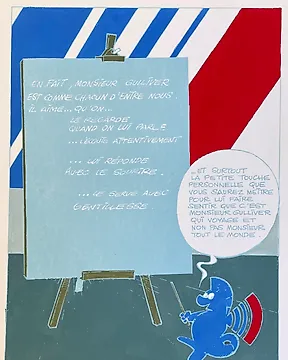 EN FAIT, MONSIEUR GULLIVER
EST COMME CHACUN D'ENTRE NOUS.
IL AIME... QU'ON...
LE REGARDE
QUAND ON LUI PARLE
...L'ÉCOUTE ATTENTIVEMENT
... LUI RÉPONDE
AVEC LE SOURIRE...
... LE SERVE AVEC
GENTILLESSE...
...ET SURTOUT
LA PETITE TOUCHE
PERSONNELLE QUE
VOUS SAUREZ METTRE
POUR LUI FAIRE
SENTIR QUE C'EST
MONSIEUR GULLIVER
QUI VOYAGE ET
NON PAS MONSIEUR
TOUT LE MONDE...